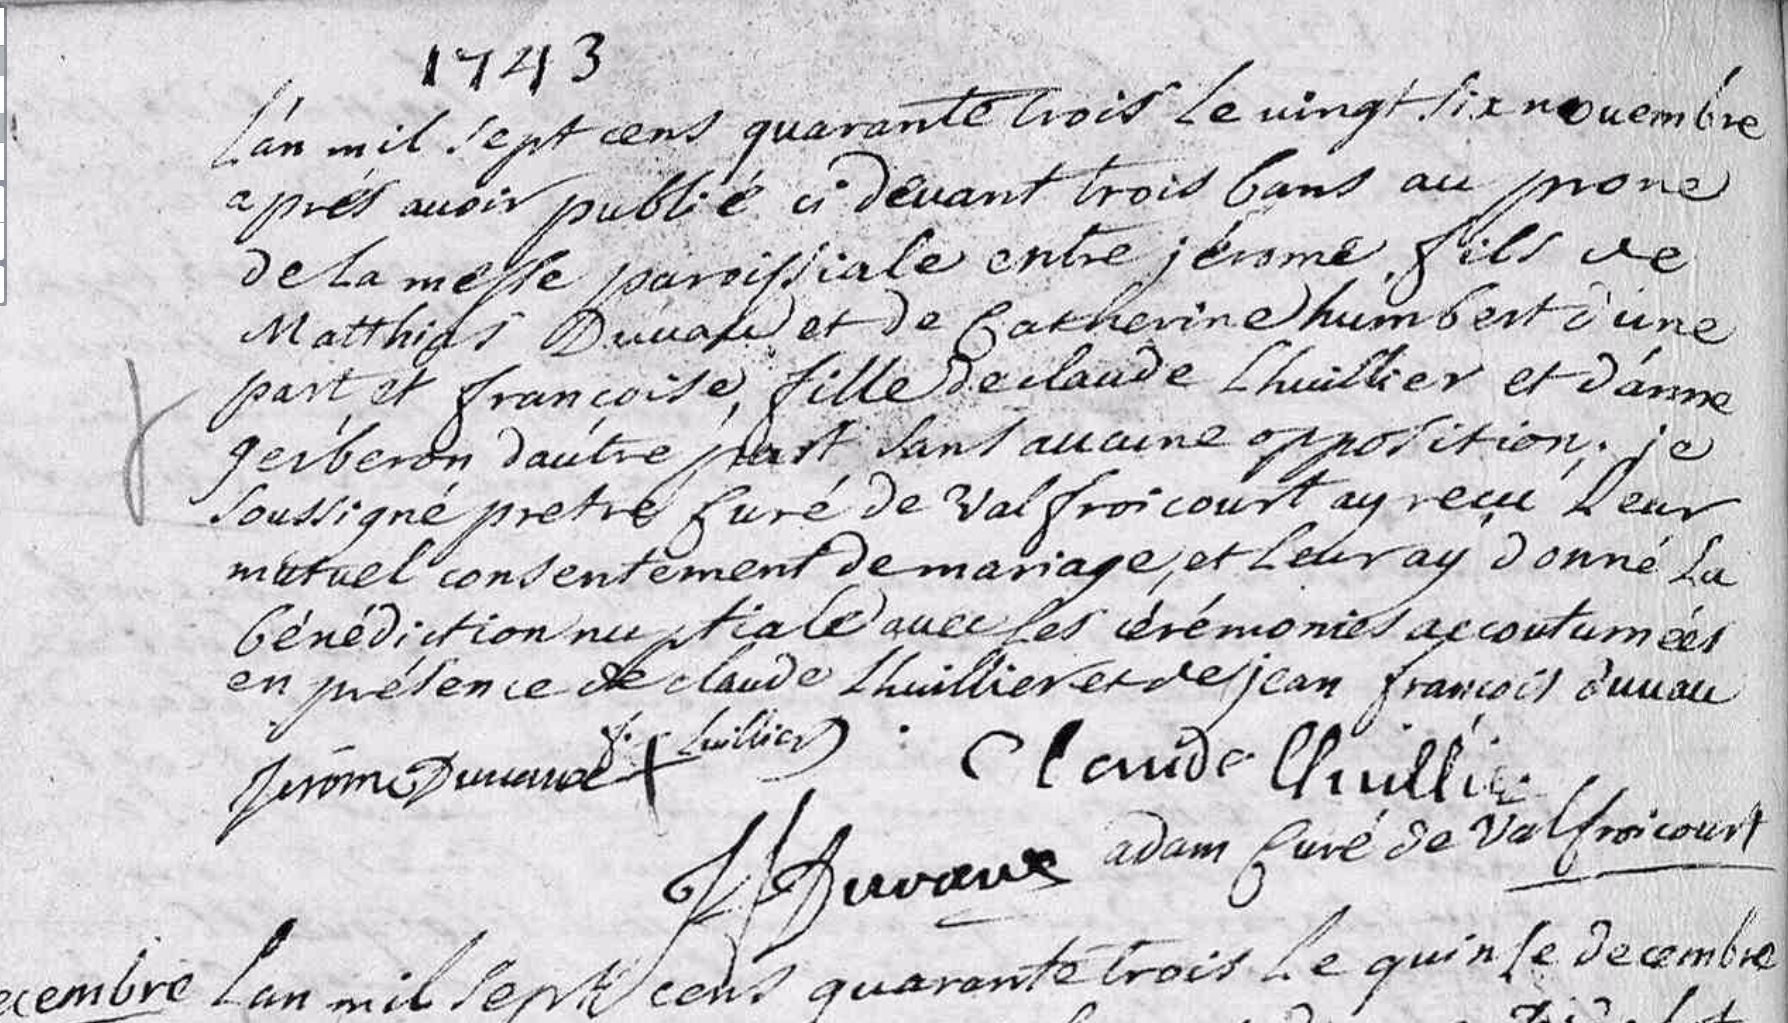 1743
L'an mil sept cens quarante trois le vingt six novembre
après avoir publié ci devant trois bans au prone
de la messe paroissiale entre jérome, fils de
Matthias Duvau et de Catherine humbert d'une
part et françoise, fille de claude Lhuillier et d'anne
gerberon d'autre part sans aucune opposition, je
soussigné pretre Curé de Valfroicourt ay reçu Leur
mutuel consentement de mariage, et Leur ay donné La
bénédiction nuptiale avec les cérémonies accoutumées
en présence de claude Lhuillier et de jean françois duvau
Jerôme Duvaux f. + Luillier Claude Lhuillier
JF Duvaux adam Curé de Valfroicourt
ecembre L'an mil sept cens quarante trois Le quinse decembre